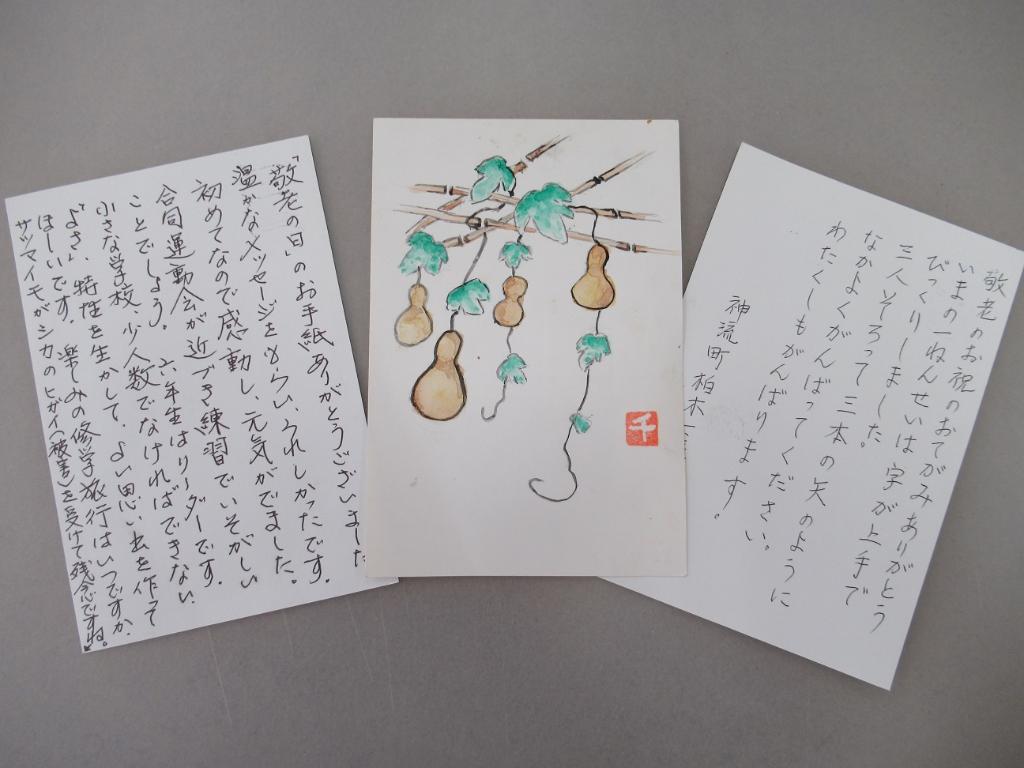 「敬老の日」のお手紙ありがとうございました
温かなメッセージをもらい、うれしかったです。
初めてなので感動し、元気がでました。
合同運動会が近づき練習でいそがしい
ことでしょう。六年生はリーダーです。
小さな学校、少人数でなければできない
"よさ"、特性を生かして、よい思い出を作って
ほしいです。楽しみの修学旅行はいつですか、
サツマイモがシカのヒガイ(被害)を受けて残念ですね。
千
敬老のお祝のおてがみありがとう
いまの一ねんせいは字が上手で
びっくりしました。
三人そろって三本の矢のように
なかよくがんばってください。
わたくしもがんばります。
神流町柏木